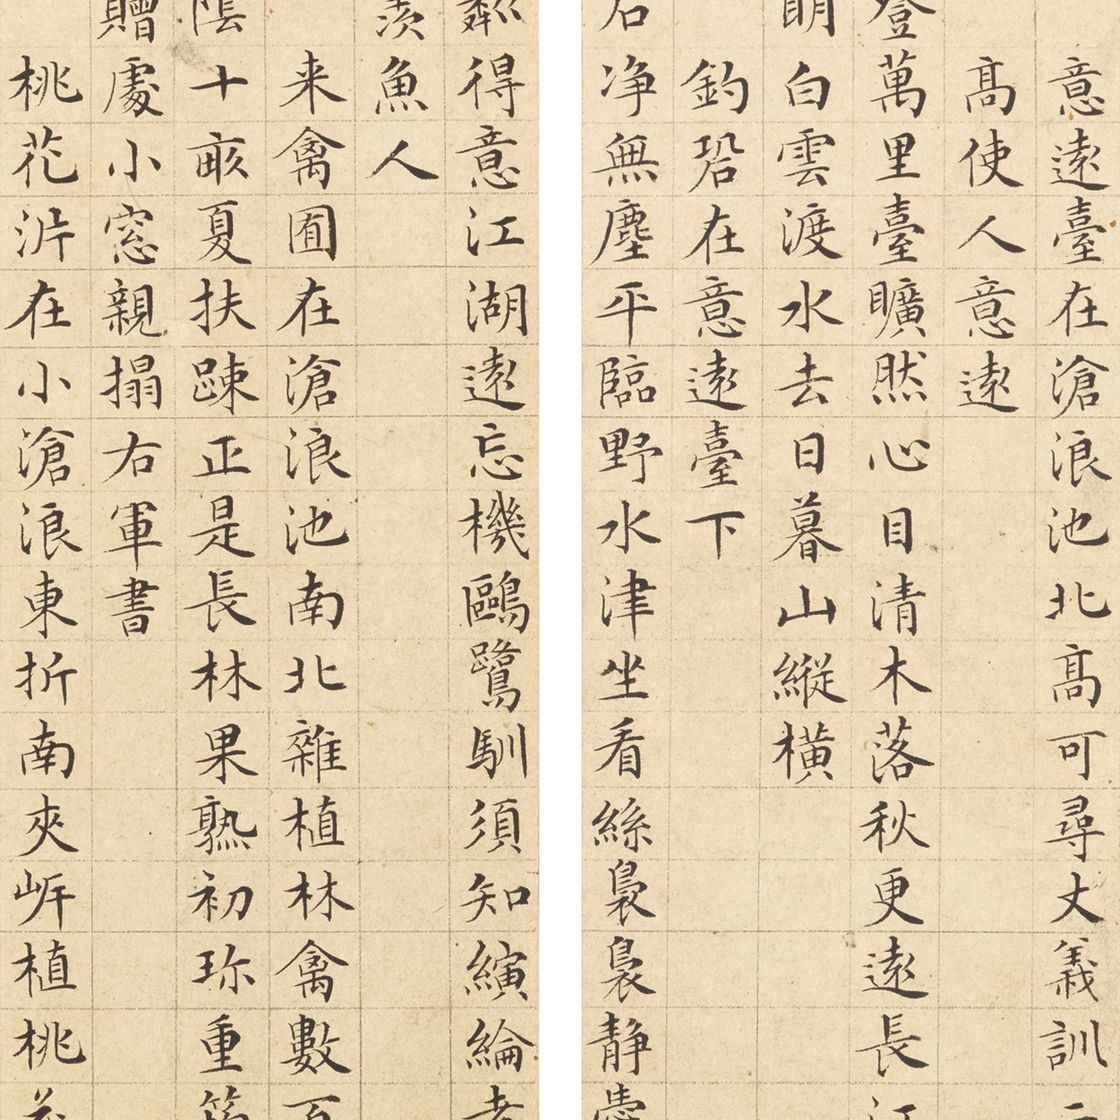 意遠臺在滄浪池北高可尋丈義訓
高使人意遠
登萬里臺曠然心目清木落秋更遠長江
白雲渡水去日暮山縱橫
釣䂬在意遠臺下
净無塵平臨野水津坐看絲裊裊靜
得意江湖遠忘機鷗鷺馴須知縯綸者
羡魚人
来禽囿在滄浪池南北雜植林禽數百
陰十畝夏扶踈正是長林果熟初珎重筠
贈處小窓親搨右軍書
桃花沜在小滄浪東折南夾岍植桃花